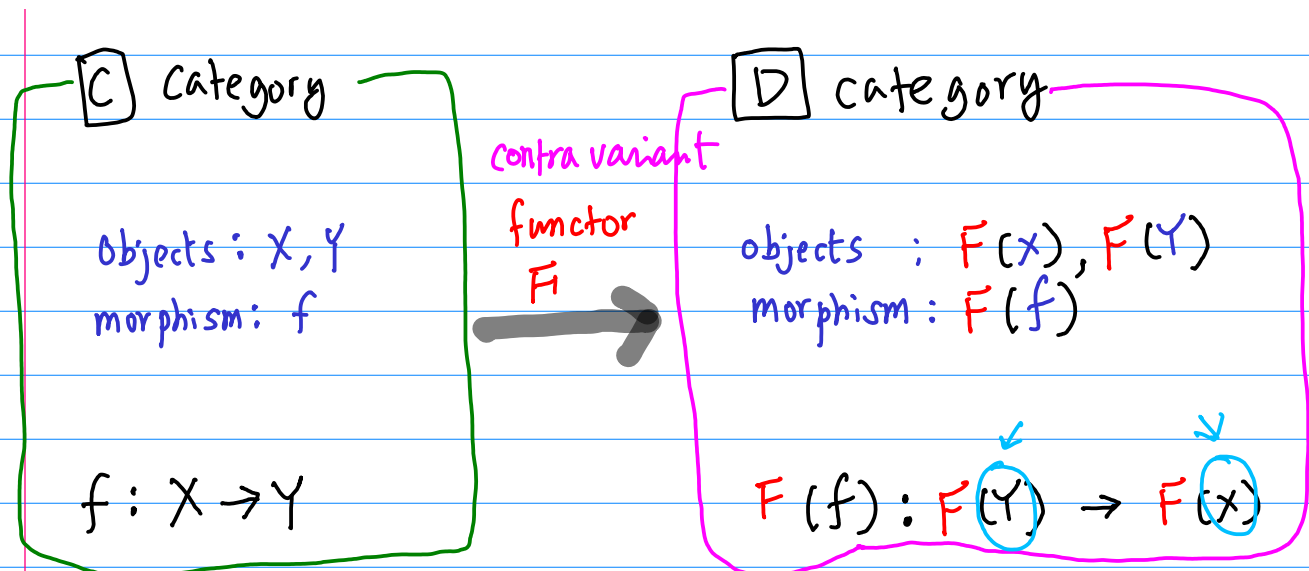 C category
objects: X, Y
morphism: f
f: X → Y
contra variant
functor
F
D category
objects : F(X), F(Y)
morphism: F(f)
F(f): F(Y) → F(X)